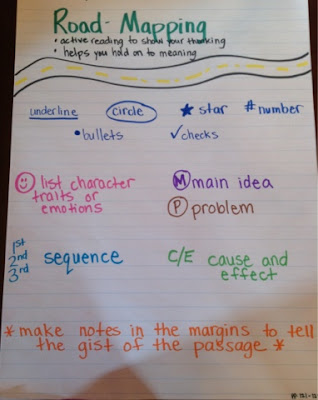 Road-Mapping
• active reading to show your thinking
• helps you hold on to meaning
underline circle ★ star # number
• bullets ✓ checks
☺ list character traits or emotions
Ⓜ main idea
Ⓟ problem
1st 2nd 3rd sequence
C/E cause and effect
* make notes in the margins to tell
the gist of the passage *